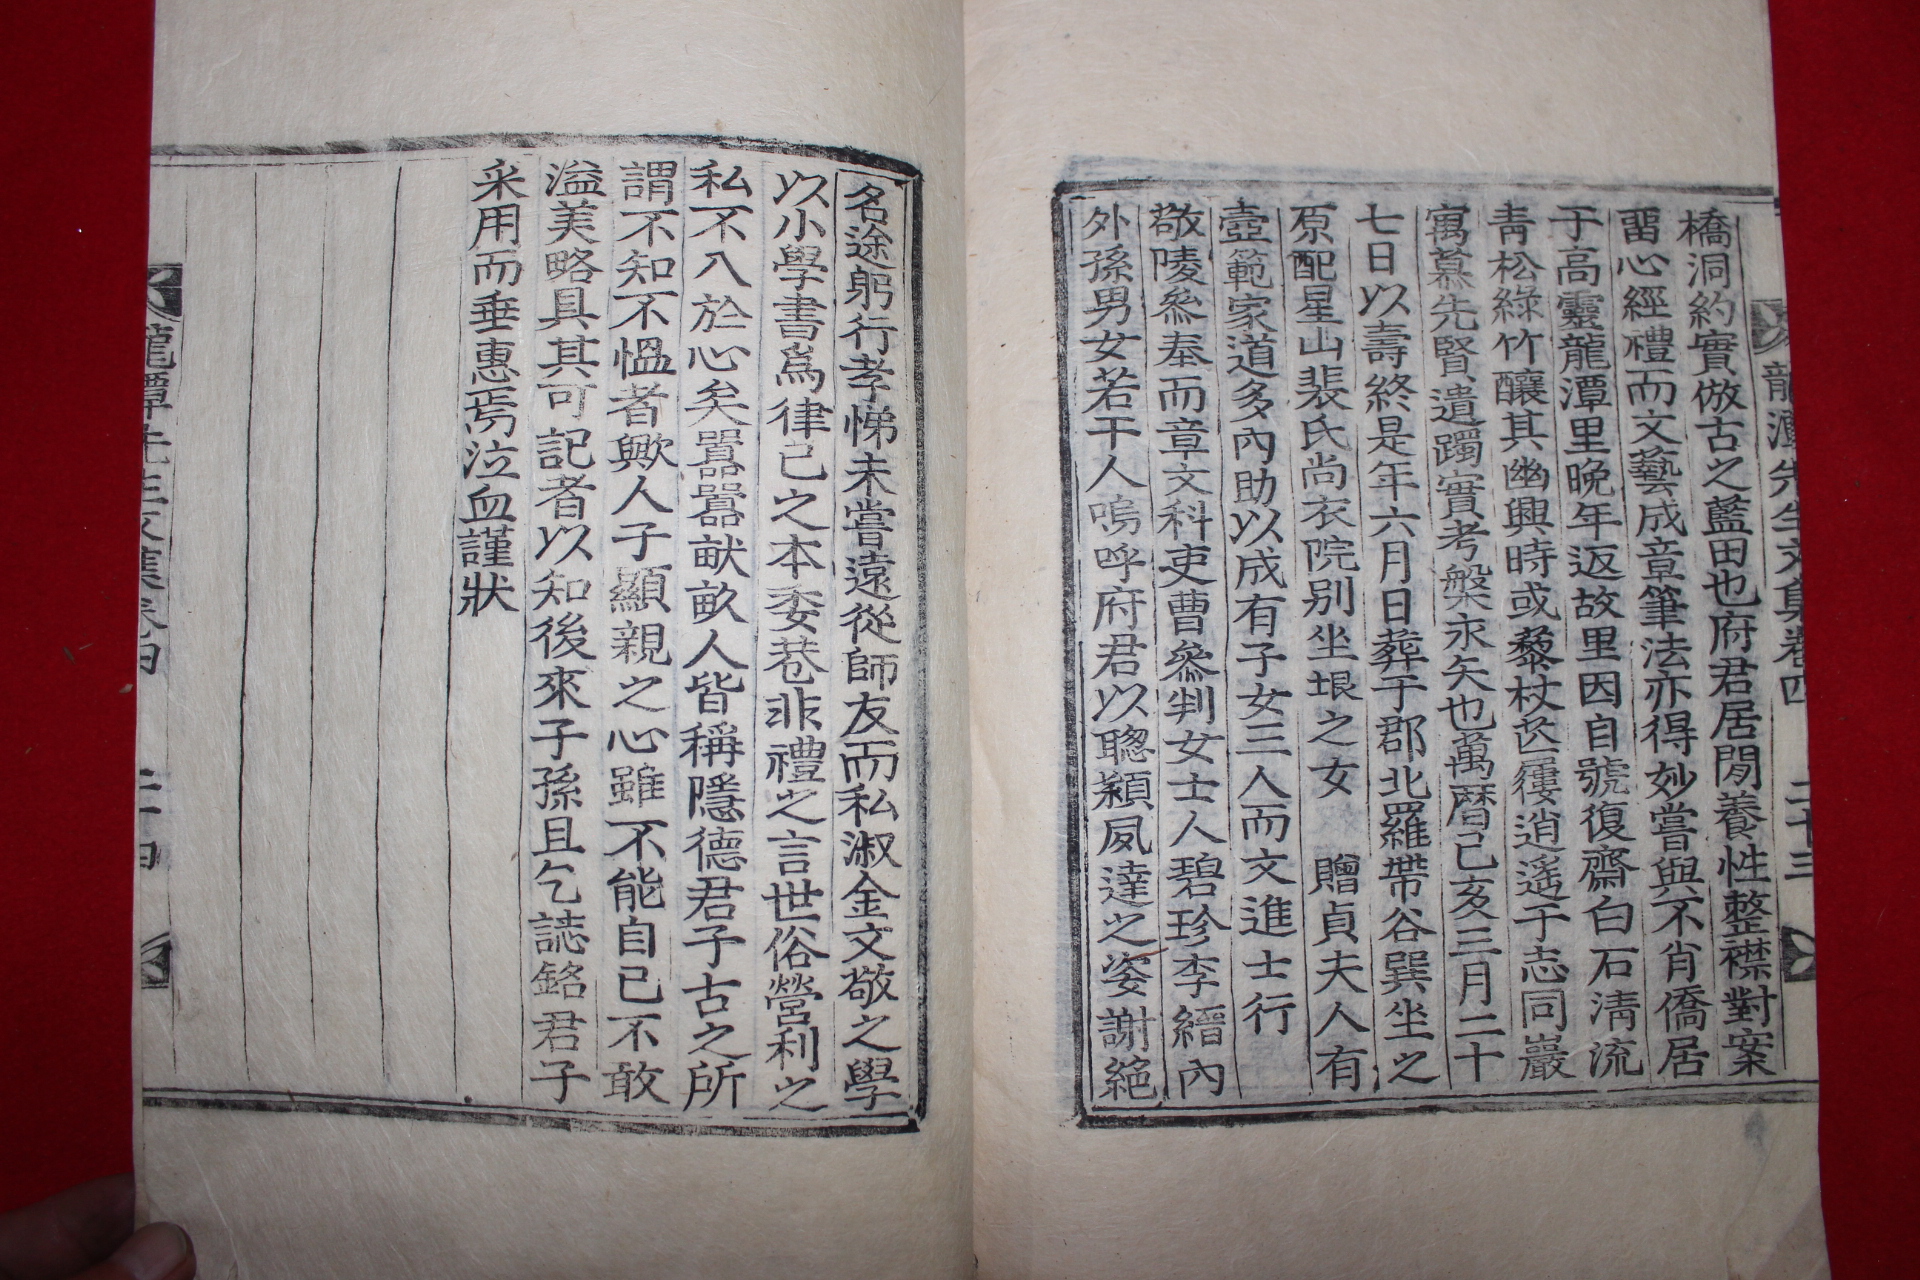 橋洞約實倣古之藍田也府君居閒養性整襟對案
留心經禮而文藝成章筆法亦得妙嘗與不肖僑居
于高靈龍潭里晚年返故里因自號復齋白石淸流
靑松綠竹釀其幽興時或藜杖芒屨逍遙于志同巖
寓慕先賢遺躅實考槃永矢也萬曆己亥三月二十
七日以壽終是年六月日葬于郡北羅帶谷巽坐之
原配星山裴氏尚衣院別坐垠之女 贈貞夫人有
壼範家道多內助以成有子女三人而文進士行
敬陵參奉而章文科吏曹參判女士人碧珍李縉內
外孫男女若干人嗚呼府君以聰穎夙達之姿謝絕
龍潭先生文集卷四 二十三
名途躬行孝悌未嘗遠從師友而私淑金文敬之學
以小學書爲律己之本委巷非禮之言世俗營利之
私不入於心矣囂囂畎畝人皆稱隱德君子古之所
謂不知不慍者歟人子顯親之心雖不能自已不敢
溢美略具其可記者以知後來子孫且乞誌銘君子
采用而垂惠焉泣血謹狀
龍潭先生文集卷四 二十四